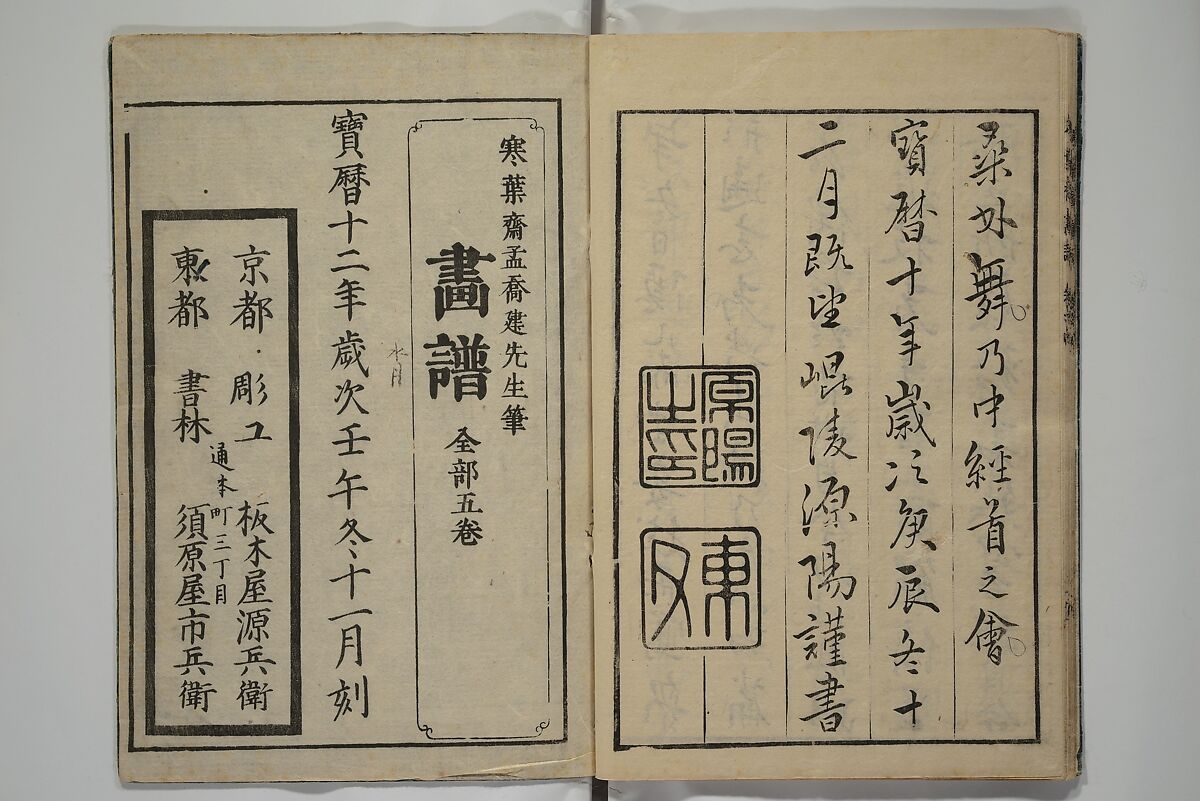 桑林舞乃中經首之會
寶暦十年歲次庚辰冬十
二月既望崐陵源陽謹書
原陽
之印
東
寒葉齋孟喬建先生筆
畫譜 全部五卷
水月
寶暦十二年歲次壬午冬十一月刻
京都 彫工 板木屋源兵衛
通本町三丁目
東都 書林 須原屋市兵衛